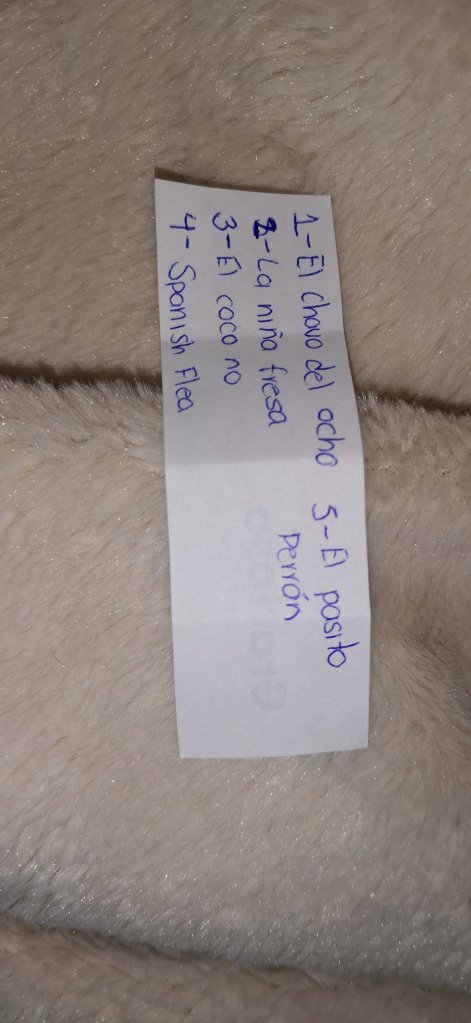 1- El chavo del ocho
2- La niña fresa
3- El coco no
4- Spanish Flea
5- El pasito
perrón